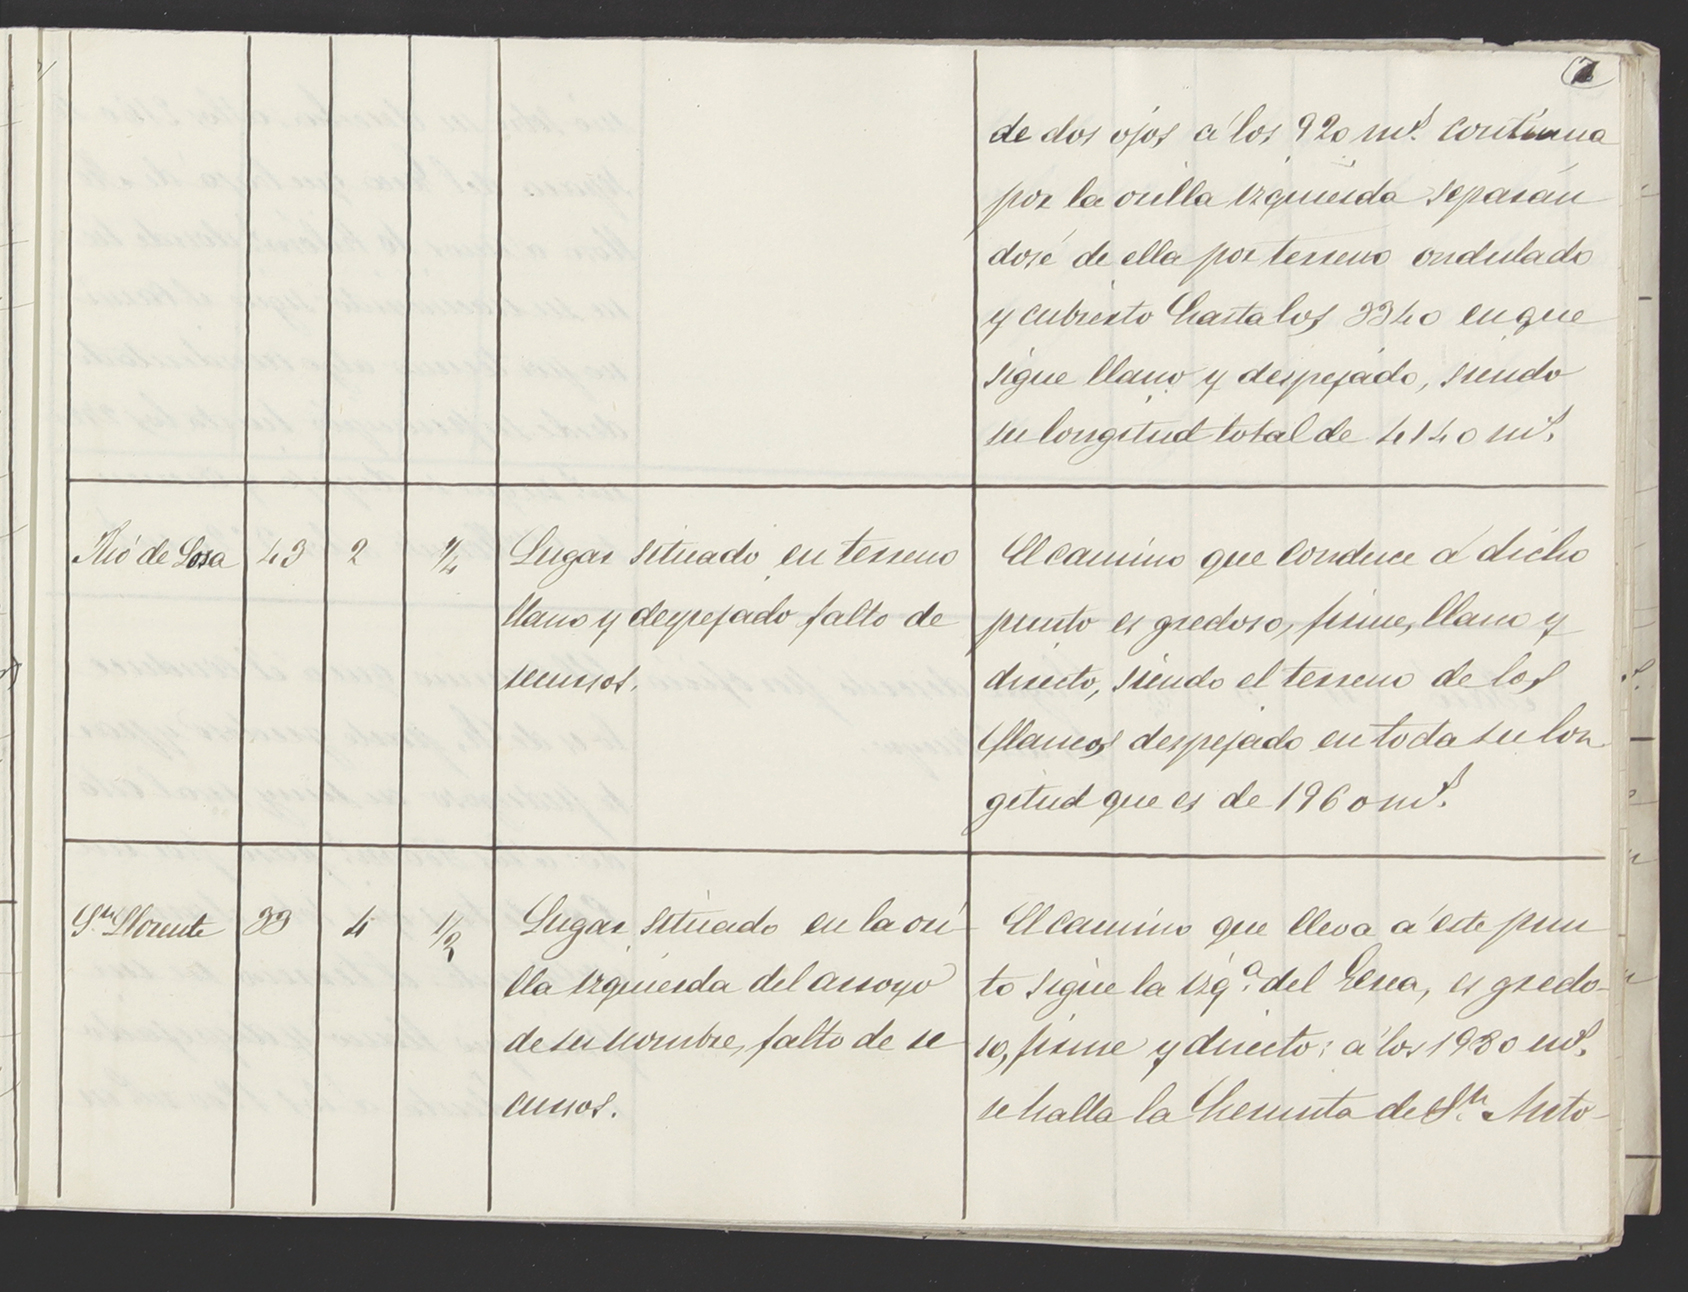 7
de dos ojos á los 920 ms. continua
por la orilla izquierda separan
dose de ella por terreno ondulado
y cubierto hasta los 3340 en que
sigue llano y despejado, siendo
su longitud total de 4140 ms.
Rio de Losa 43 2 1/4
Lugar situado en terreno
llano y despejado falto de
recursos.
El camino que conduce á dicho
punto es gredoso, firme, llano y
directo, siendo el terreno de los
flancos despejado en toda su lon
gitud que es de 1960 ms.
Sn. Llorente 33 4 1/2
Lugar situado en la ori
lla izquierda del arroyo
de su nombre, falto de re
cursos.
El camino que lleva á este pun
to sigue la izqa. del Erea, es gredo-
so, firme y directo: á los 1980 ms.
se halla la hermita de Sn. Anto-